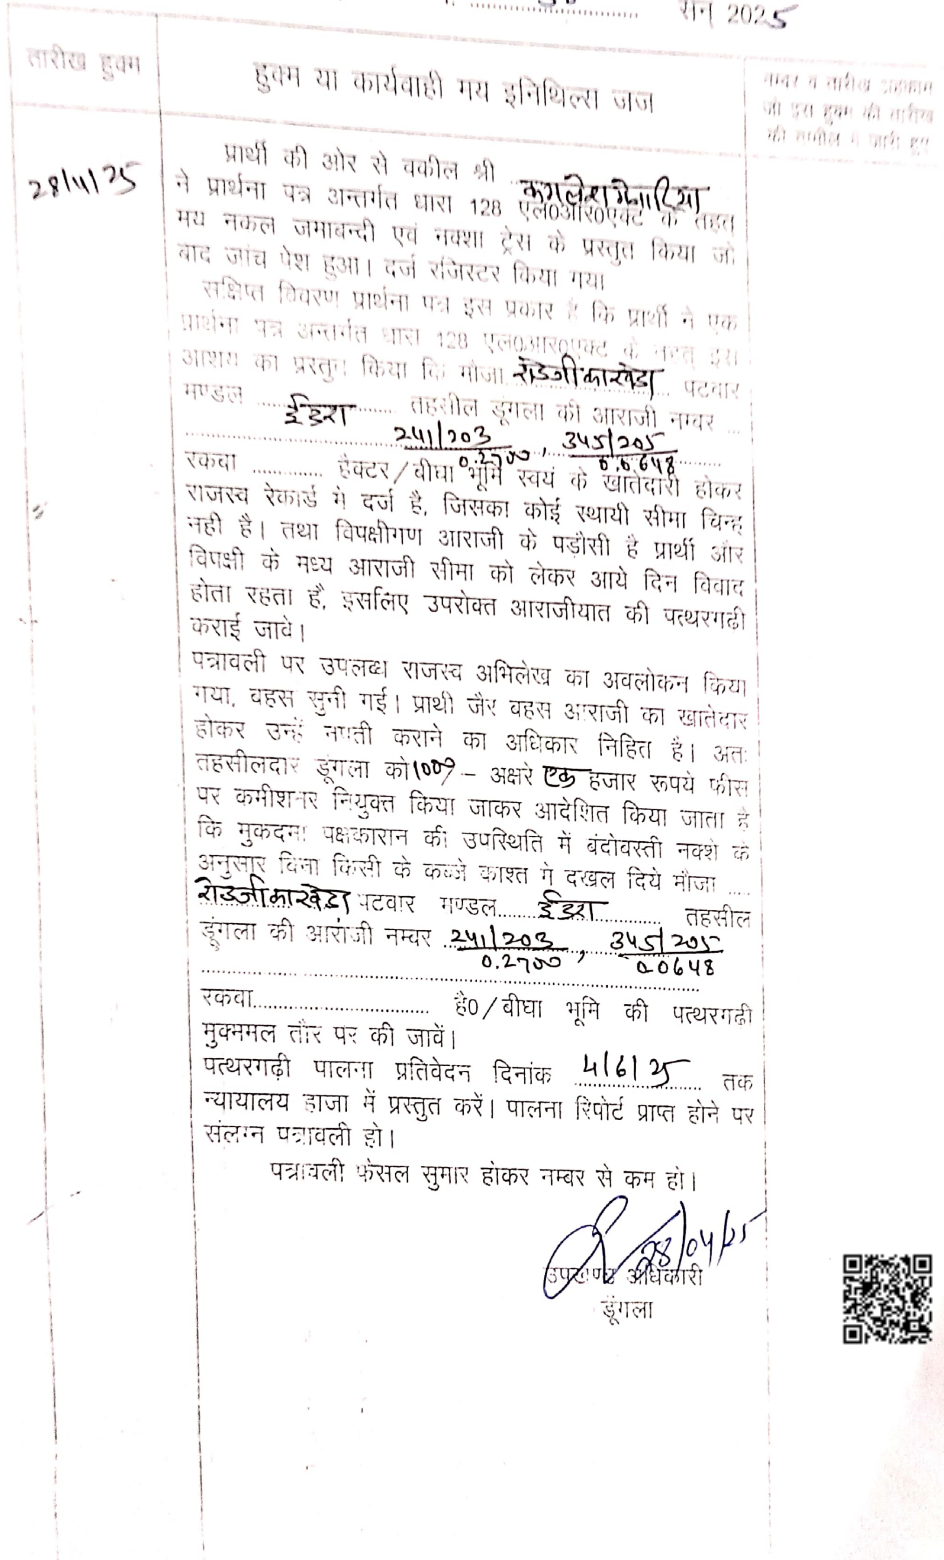 सन् 2025
तारीख हुक्म
हुक्म या कार्यवाही मय इनिथिल्स जज
नम्बर व तारीख अहकाम
जो इस हुक्म की तारीख
की तामील में जारी हुए
28/4/25
प्रार्थी की ओर से वकील श्री कमलेश मेनारिया
ने प्रार्थना पत्र अन्तर्गत धारा 128 एल0आर0एक्ट के तहत
मय नकल जमाबन्दी एवं नक्शा ट्रेस के प्रस्तुत किया जो
बाद जांच पेश हुआ। दर्ज रजिस्टर किया गया
सक्षिप्त विवरण प्रार्थना पत्र इस प्रकार है कि प्रार्थी ने एक
प्रार्थना पत्र अन्तर्गत धारा 128 एल0आर0एक्ट के तहत इस
आशय का प्रस्तुत किया कि मौजा रोडजी का खेडा पटवार
मण्डल ईडरा तहसील डूंगला की आराजी नम्बर
241/203 , 345/205
0.2700 0.0648
रकवा ............. हैक्टर/बीघा भूमि स्वयं के खातेदारी होकर
राजस्व रेकार्ड में दर्ज है, जिसका कोई स्थायी सीमा चिन्ह
नही है। तथा विपक्षीगण आराजी के पड़ौसी है प्रार्थी और
विपक्षी के मध्य आराजी सीमा को लेकर आये दिन विवाद
होता रहता है, इसलिए उपरोक्त आराजीयात की पत्थरगढी
कराई जावे।
पत्रावली पर उपलब्ध राजस्व अभिलेख का अवलोकन किया
गया, वहस सुनी गई। प्राथी जैर वहस आराजी का खातेदार
होकर उन्हें नपती कराने का अधिकार निहित है। अतः
तहसीलदार डूंगला को 1000/- अक्षरे एक हजार रूपये फीस
पर कमीशनर नियुक्त किया जाकर आदेशित किया जाता है
कि मुकदमा पक्षकारान की उपस्थिति में बंदोवस्ती नक्शे के
अनुसार विना किसी के कब्जे काश्त में दखल दिये मौजा ....
रोडजी का खेडा पटवार मण्डल ईडरा तहसील
डूंगला की आराजी नम्बर 241/203 , 345/205
0.2700 0.0648
रकवा............................ है0/बीघा भूमि की पत्थरगढी
मुक्ममल तौर पर की जावें।
पत्थरगढ़ी पालना प्रतिवेदन दिनांक 4/6/25 तक
न्यायालय हाजा में प्रस्तुत करें। पालना रिपोर्ट प्राप्त होने पर
संलग्न पत्रावली हो।
पत्रावली फैसल सुमार होकर नम्बर से कम हो।
28/04/25
उपखण्ड अधिकारी
डूंगला